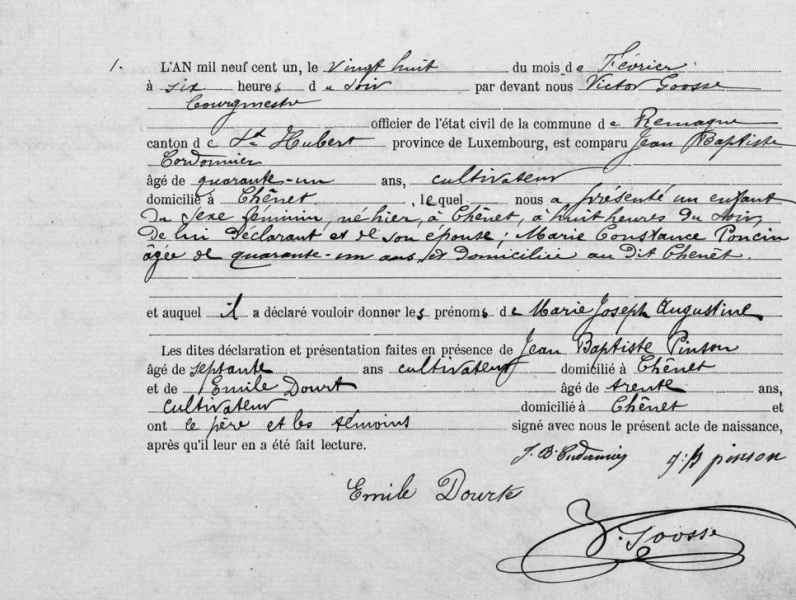 1. L'AN mil neuf cent un, le vingt huit du mois de Février
à six heures du soir par devant nous Victor Goosse
Bourgmestre
officier de l'état civil de la commune de Remagne
canton de St Hubert province de Luxembourg, est comparu Jean Baptiste
Cordonnier
âgé de quarante-un ans, cultivateur
domicilié à Chênet, lequel nous a présenté un enfant
du sexe féminin, né hier, à Chênet, à huit heures du soir,
de lui déclarant et de son épouse; Marie Constance Poncin
âgée de quarante-un ans, et domiciliée au dit Chenet.
et auquel il a déclaré vouloir donner les prénoms de Marie Joseph Augustine
Les dites déclaration et présentation faites en présence de Jean Baptiste Pinson
âgé de septante ans cultivateur domicilié à Chênet
et de Emile Dourt âgé de trente ans,
cultivateur domicilié à Chênet et
ont le père et les témoins signé avec nous le présent acte de naissance,
après qu'il leur en a été fait lecture.
J. B. Cordonnier j: b pinson
Emile Dourte
V. Goosse